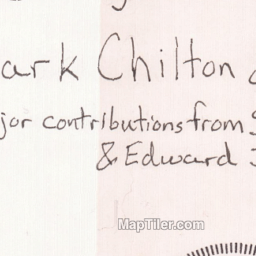 ark Chilton
jor contributions from
& Edward
MapTiler.com